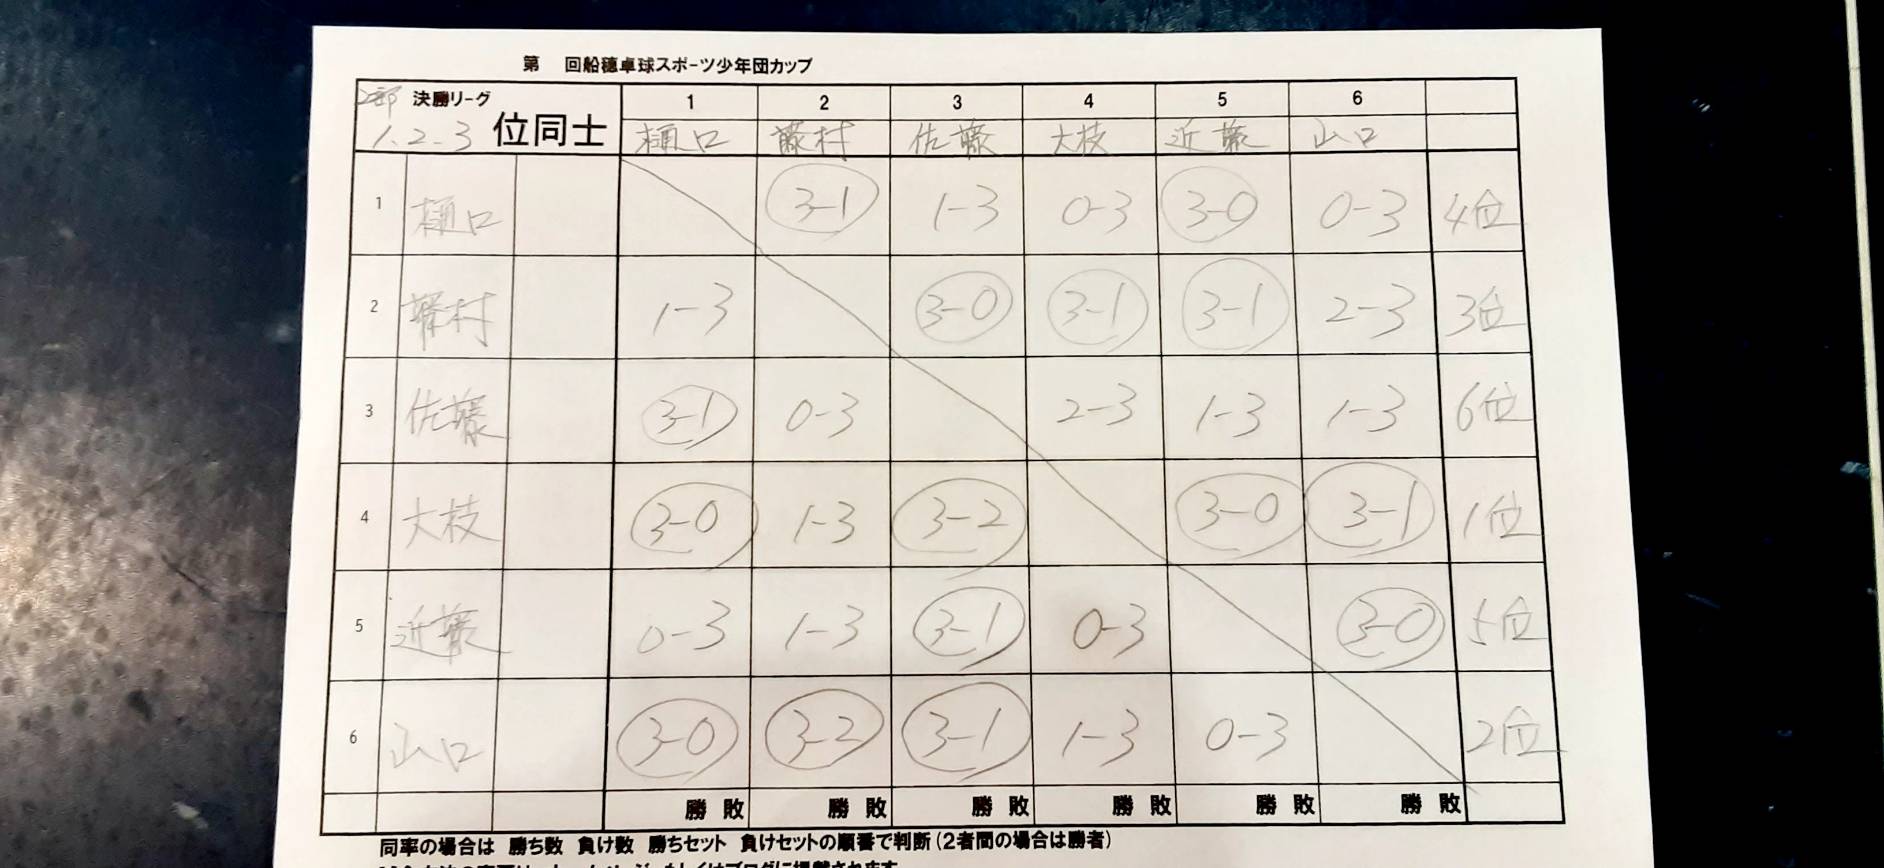 第 回船穂卓球スポーツ少年団カップ
2部 決勝リーグ 1 2 3 4 5 6
1、2-3 位同士 樋口 藤村 佐藤 大枝 近藤 山口
1 樋口 3-1 1-3 0-3 3-0 0-3 4位
2 藤村 1-3 3-0 3-1 3-1 2-3 3位
3 佐藤 3-1 0-3 2-3 1-3 1-3 6位
4 大枝 3-0 1-3 3-2 3-0 3-1 1位
5 近藤 0-3 1-3 3-1 0-3 3-0 5位
6 山口 3-0 3-2 3-1 1-3 0-3 2位
勝 敗 勝 敗 勝 敗 勝 敗 勝 敗 勝 敗
同率の場合は 勝ち数 負け数 勝ちセット 負けセットの順番で判断(2者間の場合は勝者)